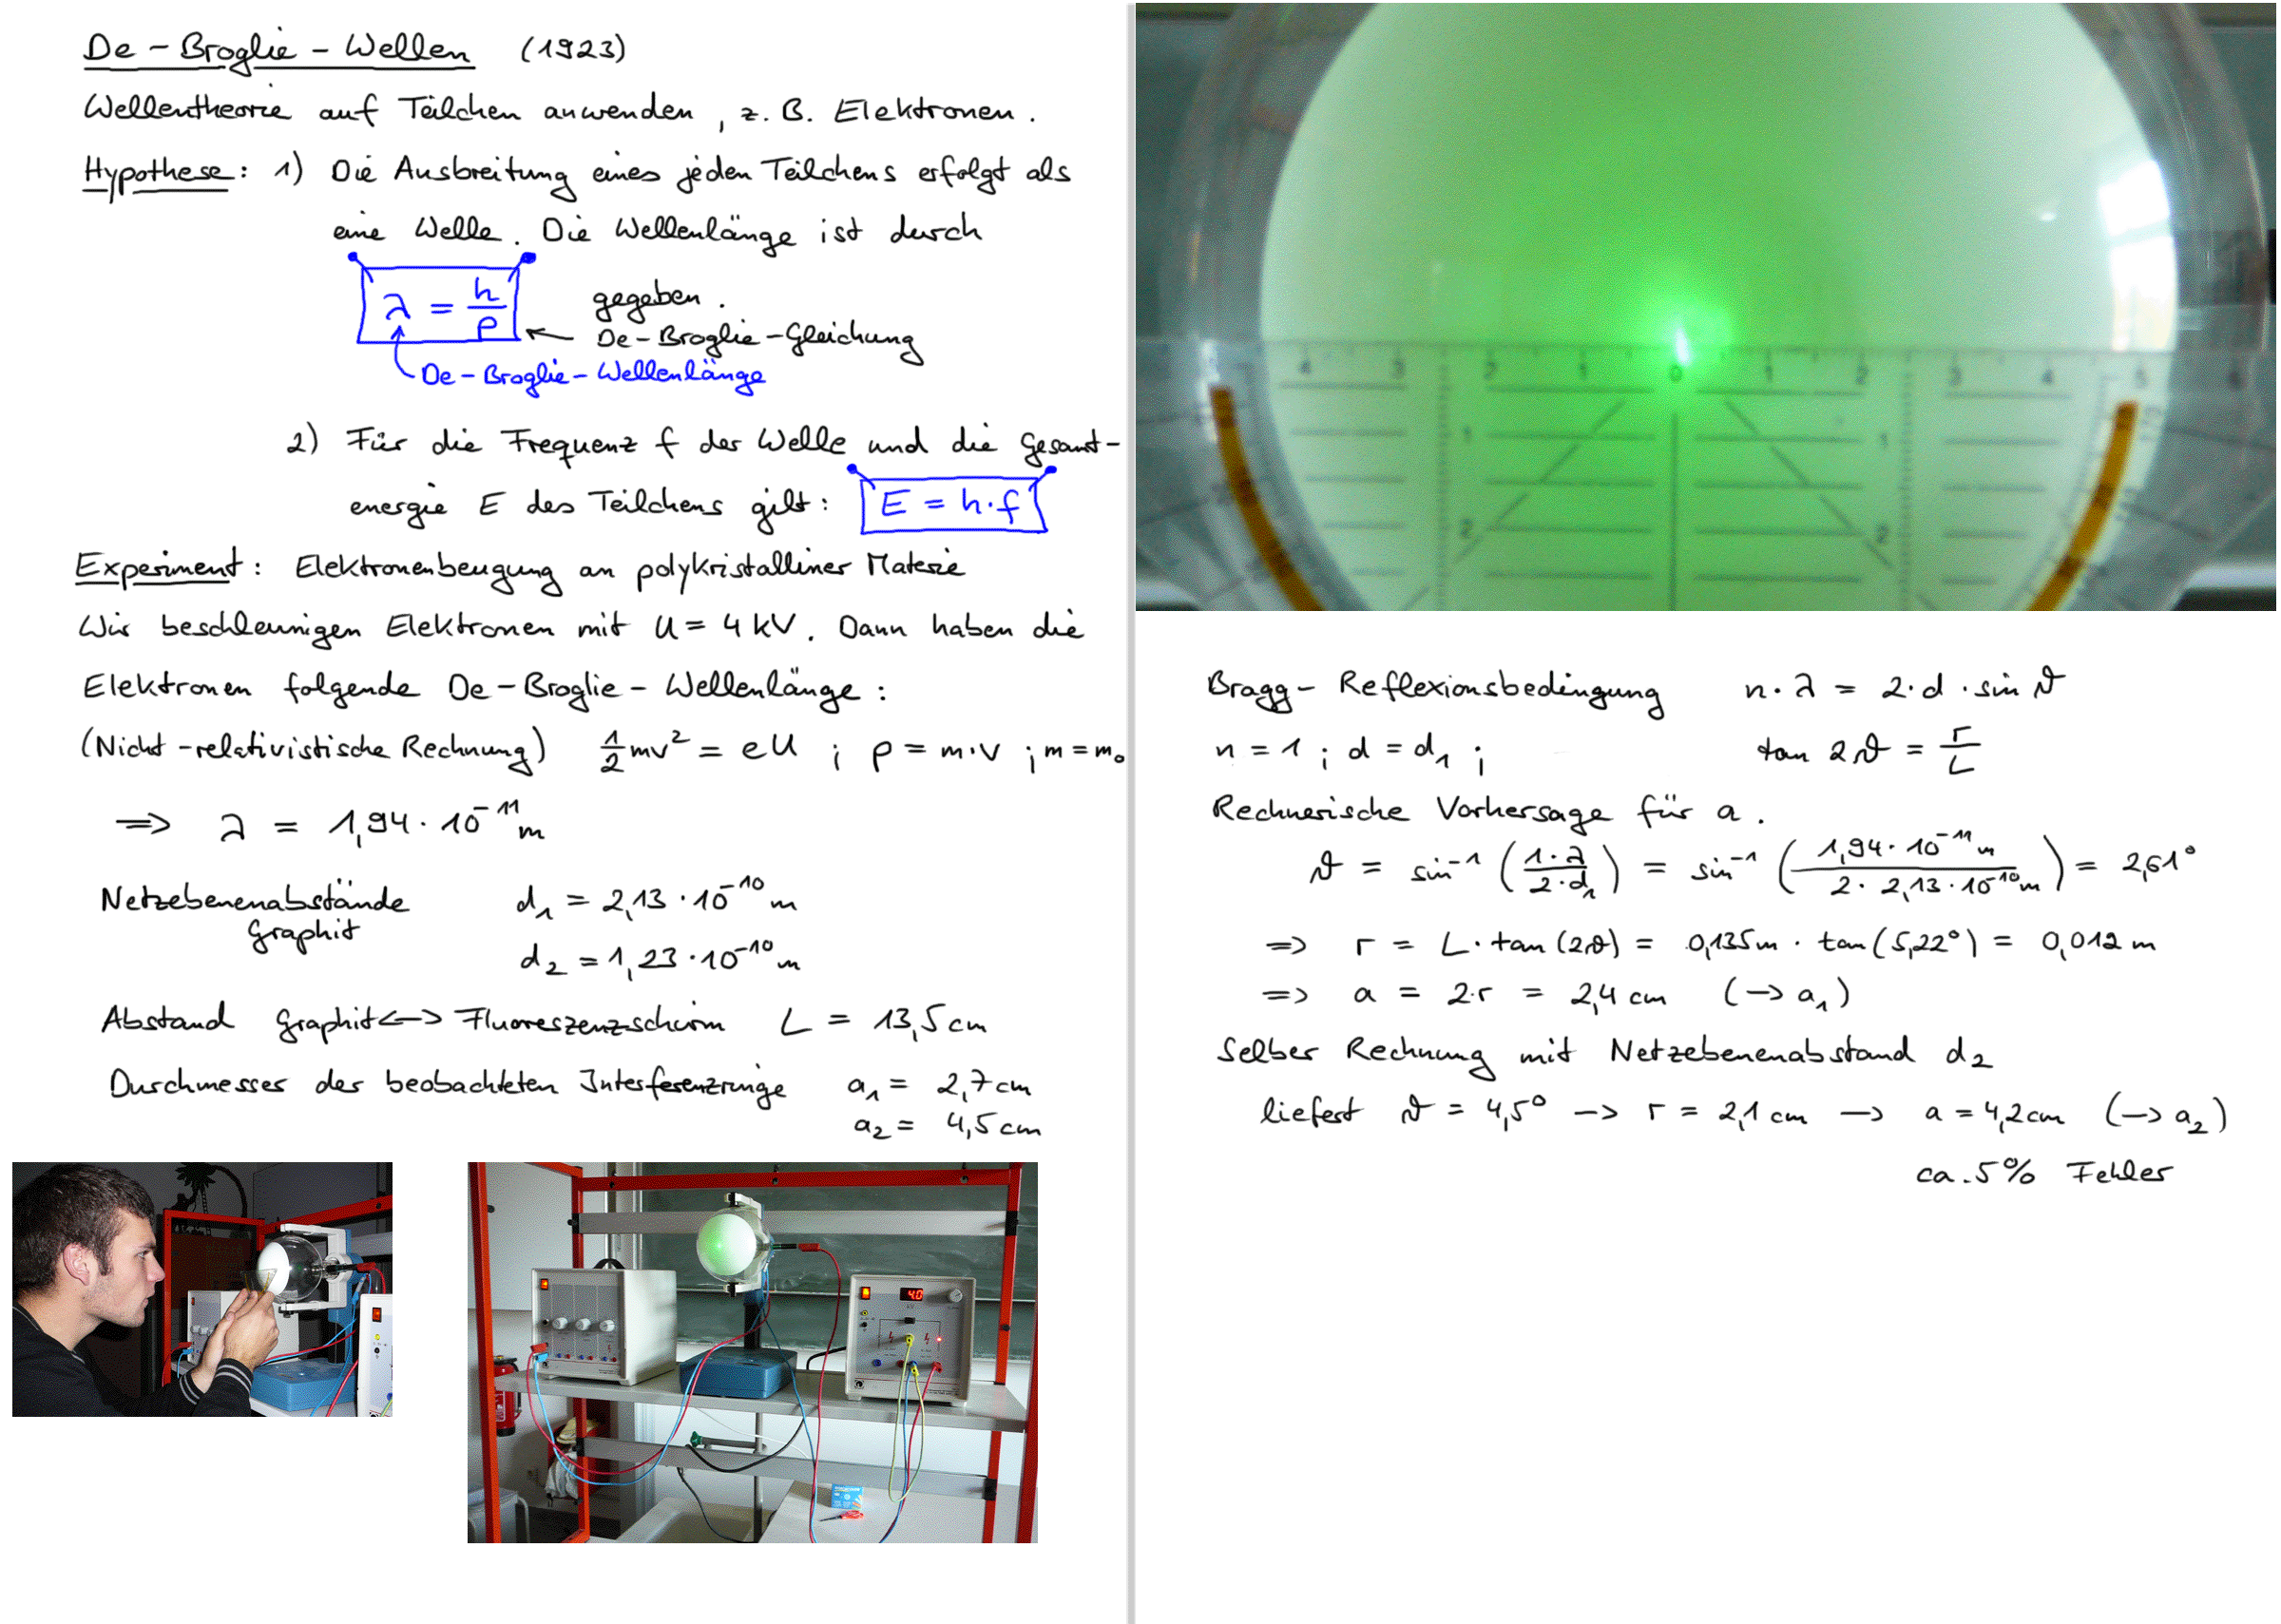 De-Broglie-Wellen (1923)
Wellentheorie auf Teilchen anwenden, z. B. Elektronen.
Hypothese: 1) Die Ausbreitung eines jeden Teilchens erfolgt als
eine Welle. Die Wellenlänge ist durch
λ = h/p gegeben.
← De-Broglie-Gleichung
De-Broglie-Wellenlänge
2) Für die Frequenz f der Welle und die Gesamt-
energie E des Teilchens gilt: E = h·f
Experiment: Elektronenbeugung an polykristalliner Materie
Wir beschleunigen Elektronen mit U = 4 kV. Dann haben die
Elektronen folgende De-Broglie-Wellenlänge:
(Nicht-relativistische Rechnung) 1/2 mv² = eU ; p = m·v ; m = m₀
⇒ λ = 1,94·10⁻¹¹ m
Netzebenenabstände d₁ = 2,13·10⁻¹⁰ m
Graphit
d₂ = 1,23·10⁻¹⁰ m
Abstand Graphit ↔ Fluoreszenzschirm L = 13,5 cm
Durchmesser der beobachteten Interferenzringe a₁ = 2,7 cm
a₂ = 4,5 cm
4.0
4 3 2 1 0 1 2 3 4 5 6
1 1
2 2
Bragg-Reflexionsbedingung n·λ = 2·d·sin ϑ
n = 1 ; d = d₁ ; tan 2ϑ = r/L
Rechnerische Vorhersage für a.
ϑ = sin⁻¹ (1·λ / 2·d₁) = sin⁻¹ (1,94·10⁻¹¹ m / 2·2,13·10⁻¹⁰ m) = 2,61°
⇒ r = L·tan(2ϑ) = 0,135 m · tan(5,22°) = 0,012 m
⇒ a = 2·r = 2,4 cm (→ a₁)
Selber Rechnung mit Netzebenenabstand d₂
liefert ϑ = 4,5° → r = 2,1 cm → a = 4,2 cm (→ a₂)
ca. 5% Fehler